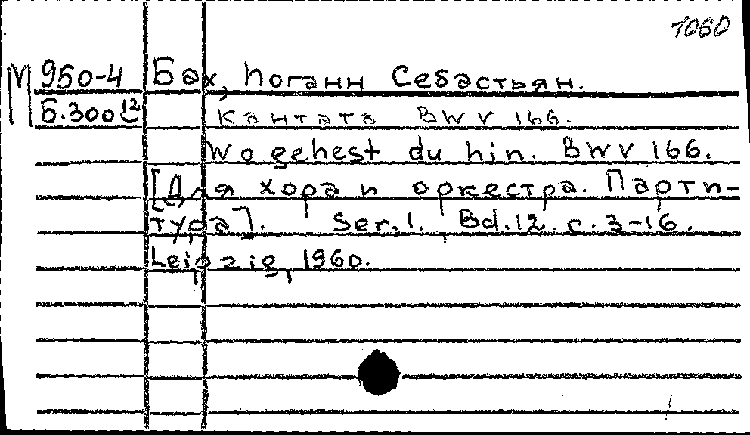 1060
М 950-4 Бах, Иоганн Себастьян.
Б.300 12 Кантата BWV 166.
Wo gehest du hin. BWV 166.
[Для хора и оркестра. Парти-
тура]. Ser.1. Bd.12. с. 3-16.
Leipzig, 1960.